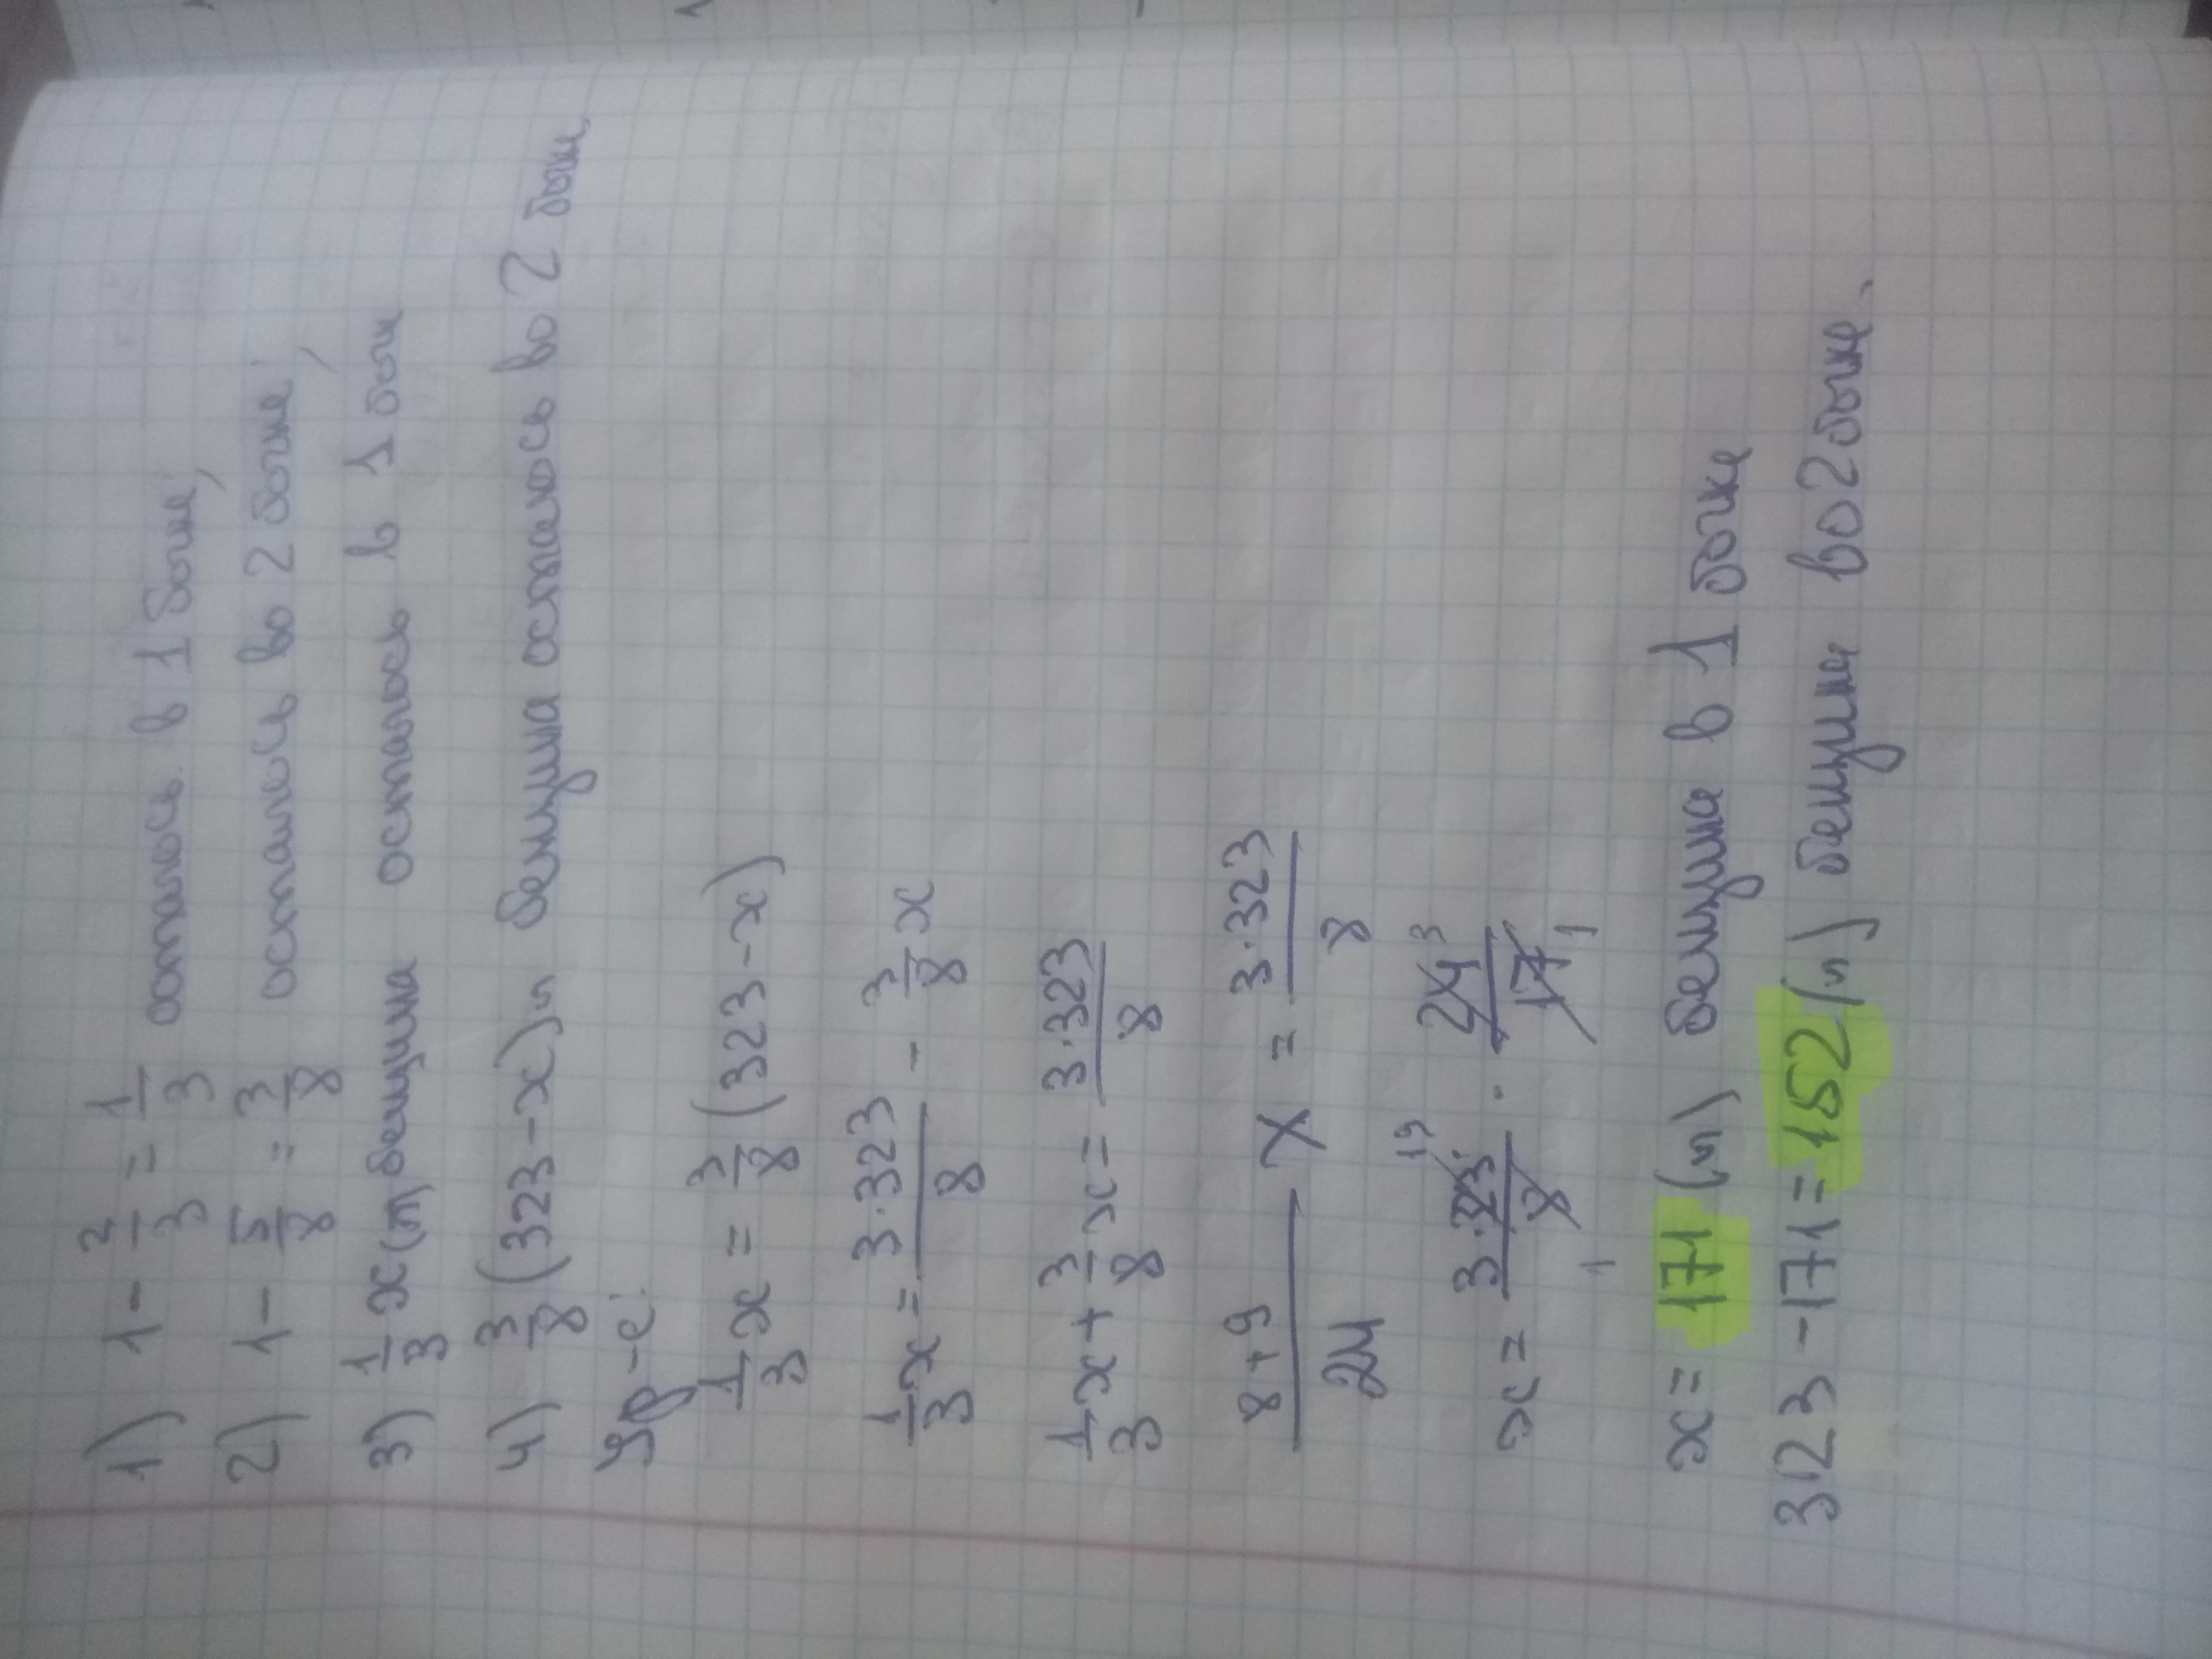 1) 1 - 2/3 = 1/3 осталось в 1 бочке;
2) 1 - 5/8 = 3/8 осталось во 2 бочке;
3) 1/3 x (л) бензина осталось в 1 бочк
4) 3/8 (323 - x) л бензина осталось во 2 бочк.
Ур-е:
1/3 x = 3/8 (323 - x)
1/3 x = 3·323/8 - 3/8 x
1/3 x + 3/8 x = 3·323/8
8+9/24 x = 3·323/8
x = 3·323 19/8 1 · 24 3/17 1
x = 171 (л) бензина в 1 бочке
323 - 171 = 152 (л) бензина во 2 бочке.